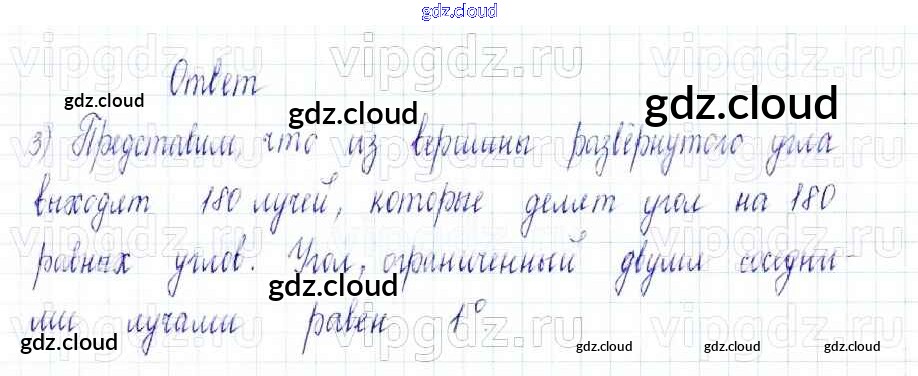 gdz.cloud
vipgdz.ru vipgdz.ru vipgdz.ru
Ответ
gdz.cloud gdz.cloud gdz.cloud
3) Представим, что из вершины развёрнутого угла
выходят 180 лучей, которые делят угол на 180
равных углов. Угол, ограниченный двумя соседни-
gdz.cloud
ми лучами равен 1°
gdz.cloud gdz.cloud gdz.cloud gdz.cloud